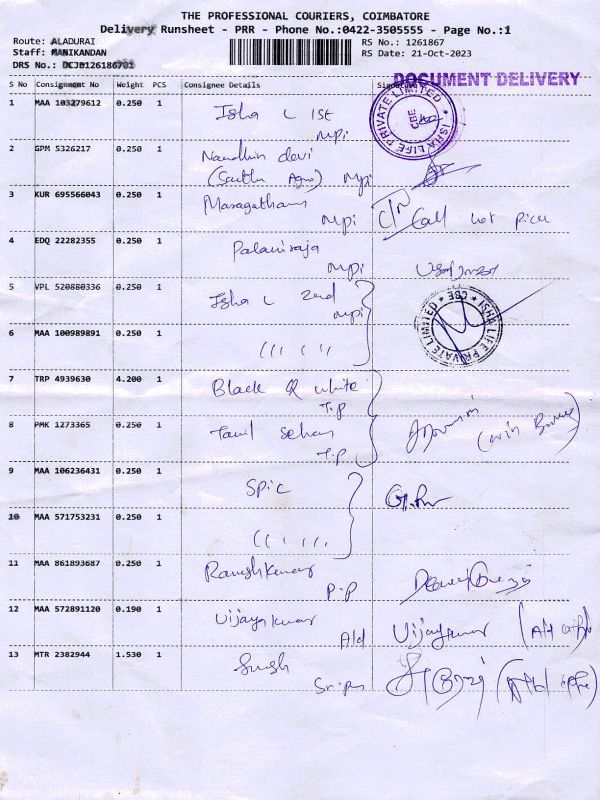 THE PROFESSIONAL COURIERS, COIMBATORE
Delivery Runsheet - PRR - Phone No.:0422-3505555 - Page No.:1
Route: ALADURAI
Staff: MANIKANDAN
DRS No.: DCJB126186701
RS No.: 1261867
RS Date: 21-Oct-2023
DOCUMENT DELIVERY
S No Consignment No Weight PCS Consignee Details Signature
1 MAA 103279612 0.250 1 Isha L 1st
Mpi
ISHA LIFE PRIVATE LIMITED
CBE
2 GPM 5326217 0.250 1 Nandhin devi
Mpi
3 KUR 695566043 0.250 1 Maragatham
Mpi Call not pick
4 EDQ 22282355 0.250 1 Palaniraja
Mpi
5 VPL 520880336 0.250 1 Isha L 2nd
Mpi
ISHA LIFE PRIVATE LIMITED
CBE
6 MAA 100989891 0.250 1
7 TRP 4939630 4.200 1 Black & white
T.P
8 PMK 1273365 0.250 1 Tamil
T.P
9 MAA 106236431 0.250 1 Spic
10 MAA 571753231 0.250 1
11 MAA 861893687 0.250 1 Rameshkumar
P.P
12 MAA 572891120 0.190 1 Vijayakumar
Ald Vijayakumar
13 MTR 2382944 1.530 1